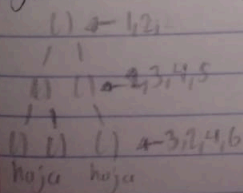 () ← 1,2,
() () ← 2,3,4,5
() () () ← 3,2,4,6
hoja hoja